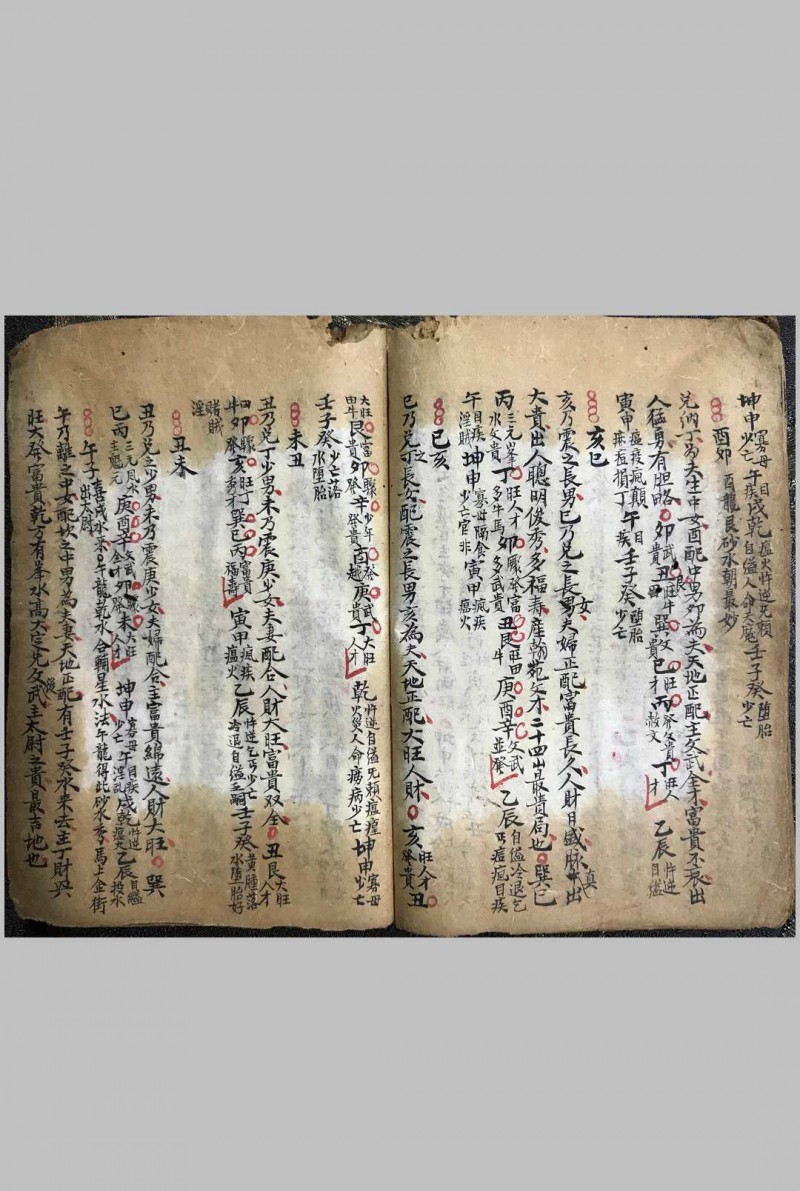 坤申寡母少亡午目疾戌乾瘟火忤逆兄賴自縊人命天魔壬子癸堕胎少亡
酉卯 酉龍艮砂水朝最妙
兌納丁為夫生中女酉配中男卯為夫天地正配主文武全才富貴不衰出
人猛勇有胆略卯武貴丑艮旺牛田巽文巳才丙發文貴赦文丁旺人才乙辰忤逆自縊
寅申瘟疫瘋顛損丁午目疾壬子癸堕胎少亡
亥巳
亥乃震之長男巳乃兌之長女夫婦正配富貴長久人財日盛真脉出
大貴出人聰明俊秀多福壽產翰苑文才二十四山最貴局也巽巳
丙三元峯水文貴丁旺人才多牛馬卯驟發富多武貴丑艮旺田牛庚酉辛文武並發乙辰自縊冷退乞丐瘟瘋目疾
午目疾淫賊坤申寡母隔食少亡官非寅甲瘋疾瘟火
巳亥
巳乃兌之丁長女配震之長男亥為夫天地正配大旺人財亥旺人才發貴丑
大旺田牛艮富貴卯驟發辛少年發貴酉發越庚武貴丁大旺人才乾忤逆自縊兄賴瘟瘟火災人命癆病少亡坤申寡母少亡
壬子癸少亡落水堕胎
未丑
丑乃兌丁少男未乃震庚少女夫妻配合人財大旺富貴双全丑艮大旺人才
牛田卯驟發亥旺丁發才巽巳丙富貴福壽寅甲瘋疾瘟火乙辰忤逆乞丐少亡冷退自縊乏嗣壬子癸黃腫落水堕胎好
賭賊淫
丑未
丑乃兌之少男未乃震庚少女夫婦配合主富貴綿遠人財大旺巽
巳丙三元風水主魁元庚酉辛文武全中卯驟發未大旺人才坤申寡母少亡午目疾淫乱戌乾忤逆瘟火乙辰自縊投水
午子喜戌水來出大尉午龍乾水合輔星水法午龍得此砂水秀馬上金街
午乃離之中女配坎之中男為夫妻天地正配後有壬子癸水來去主丁財兴
旺大發富貴乾方有峯水高大定兄文武主太尉之貴最吉地也